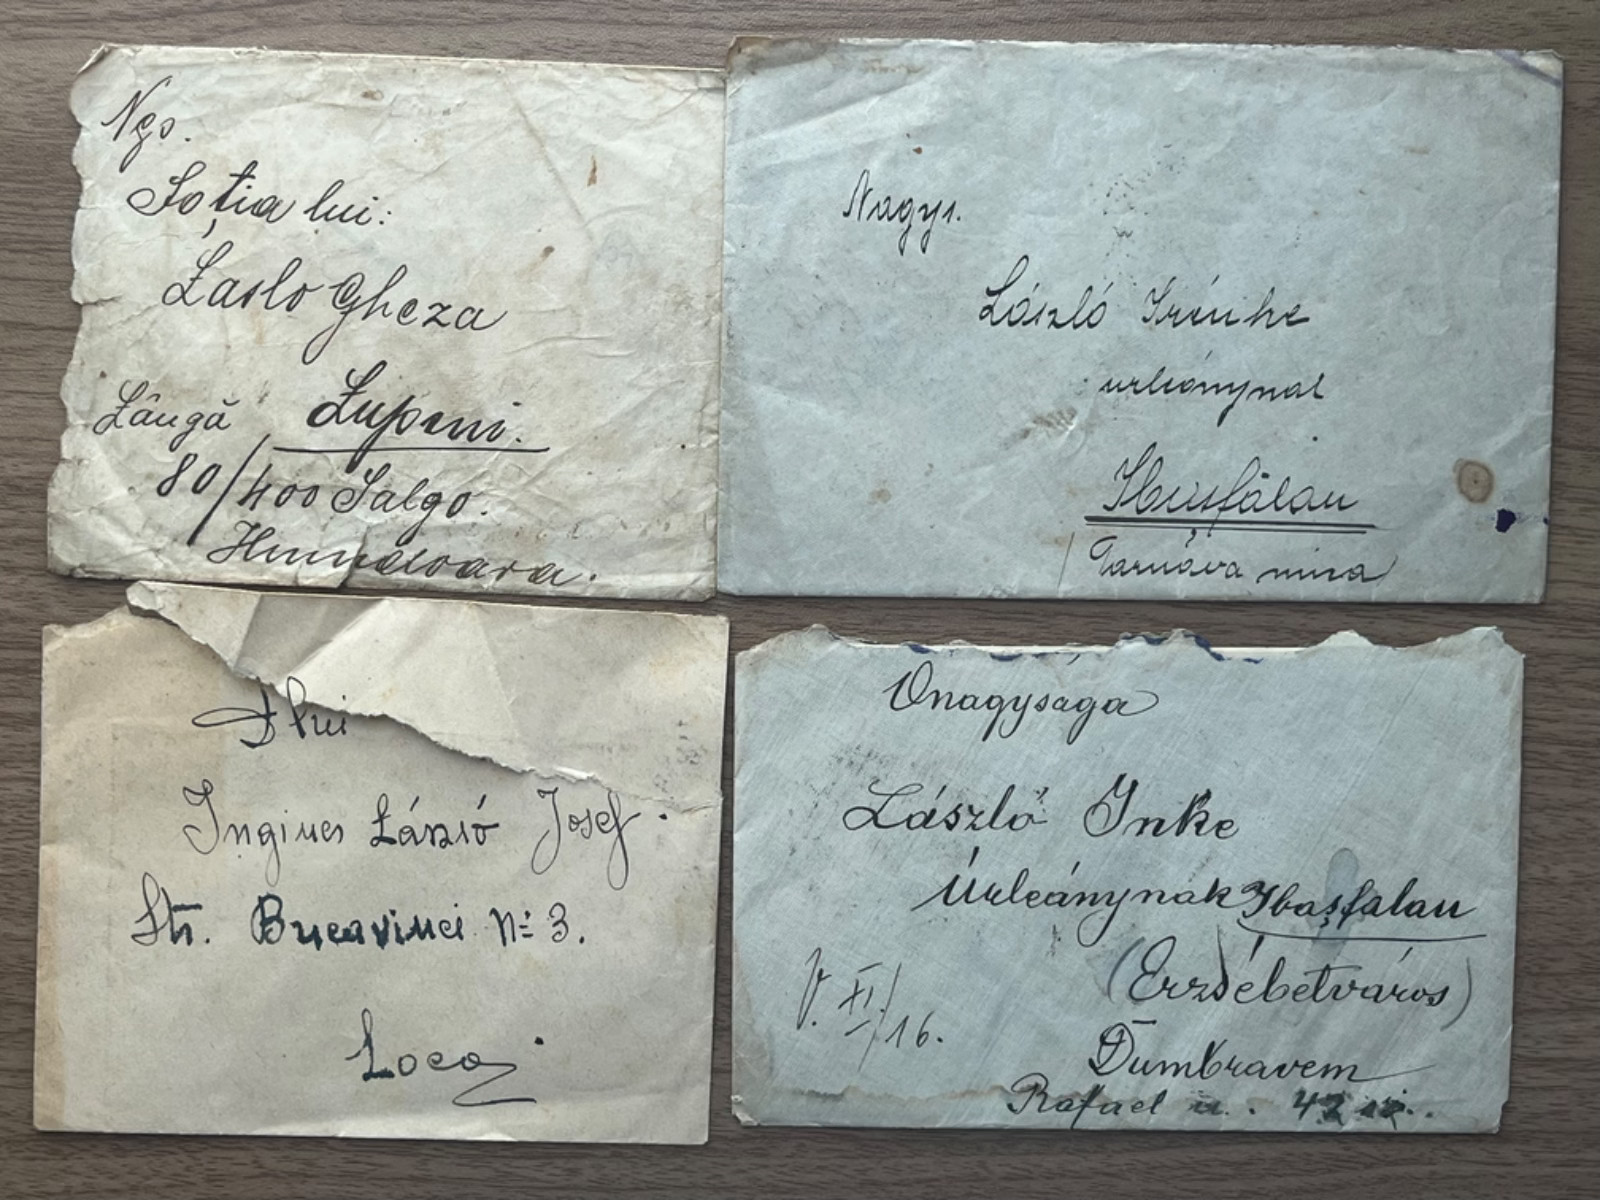 Ngs.
Soția lui:
Laslo Gheza
Lângă Lupeni.
80/400 Salgo.
Hunedoara.
Nagys.
László Irénke
urleánynak
Ibașfălău
Tarnăva mica
Dlui
Inginer László Josef.
Str. Bucavinei No 3.
Loco
Őnagysága
László Inke
Úrleánynak Ibașfalau
(Erzsébetváros)
V. XI/16.
Dumbraveni
Rafael u. 42